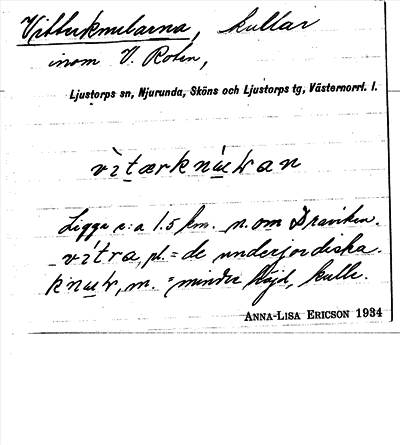 Vitterknularna, kullar
inom V. Roten,
Ljustorps sn, Njurunda, Sköns och Ljustorps tg, Västernorrl. l.
Ligga c:a 1.5 km. n. om Draviken.
vítra, pl. = de underjordiska.
m. = mindre höjd, kulle.
ANNA-LISA ERICSON 1934